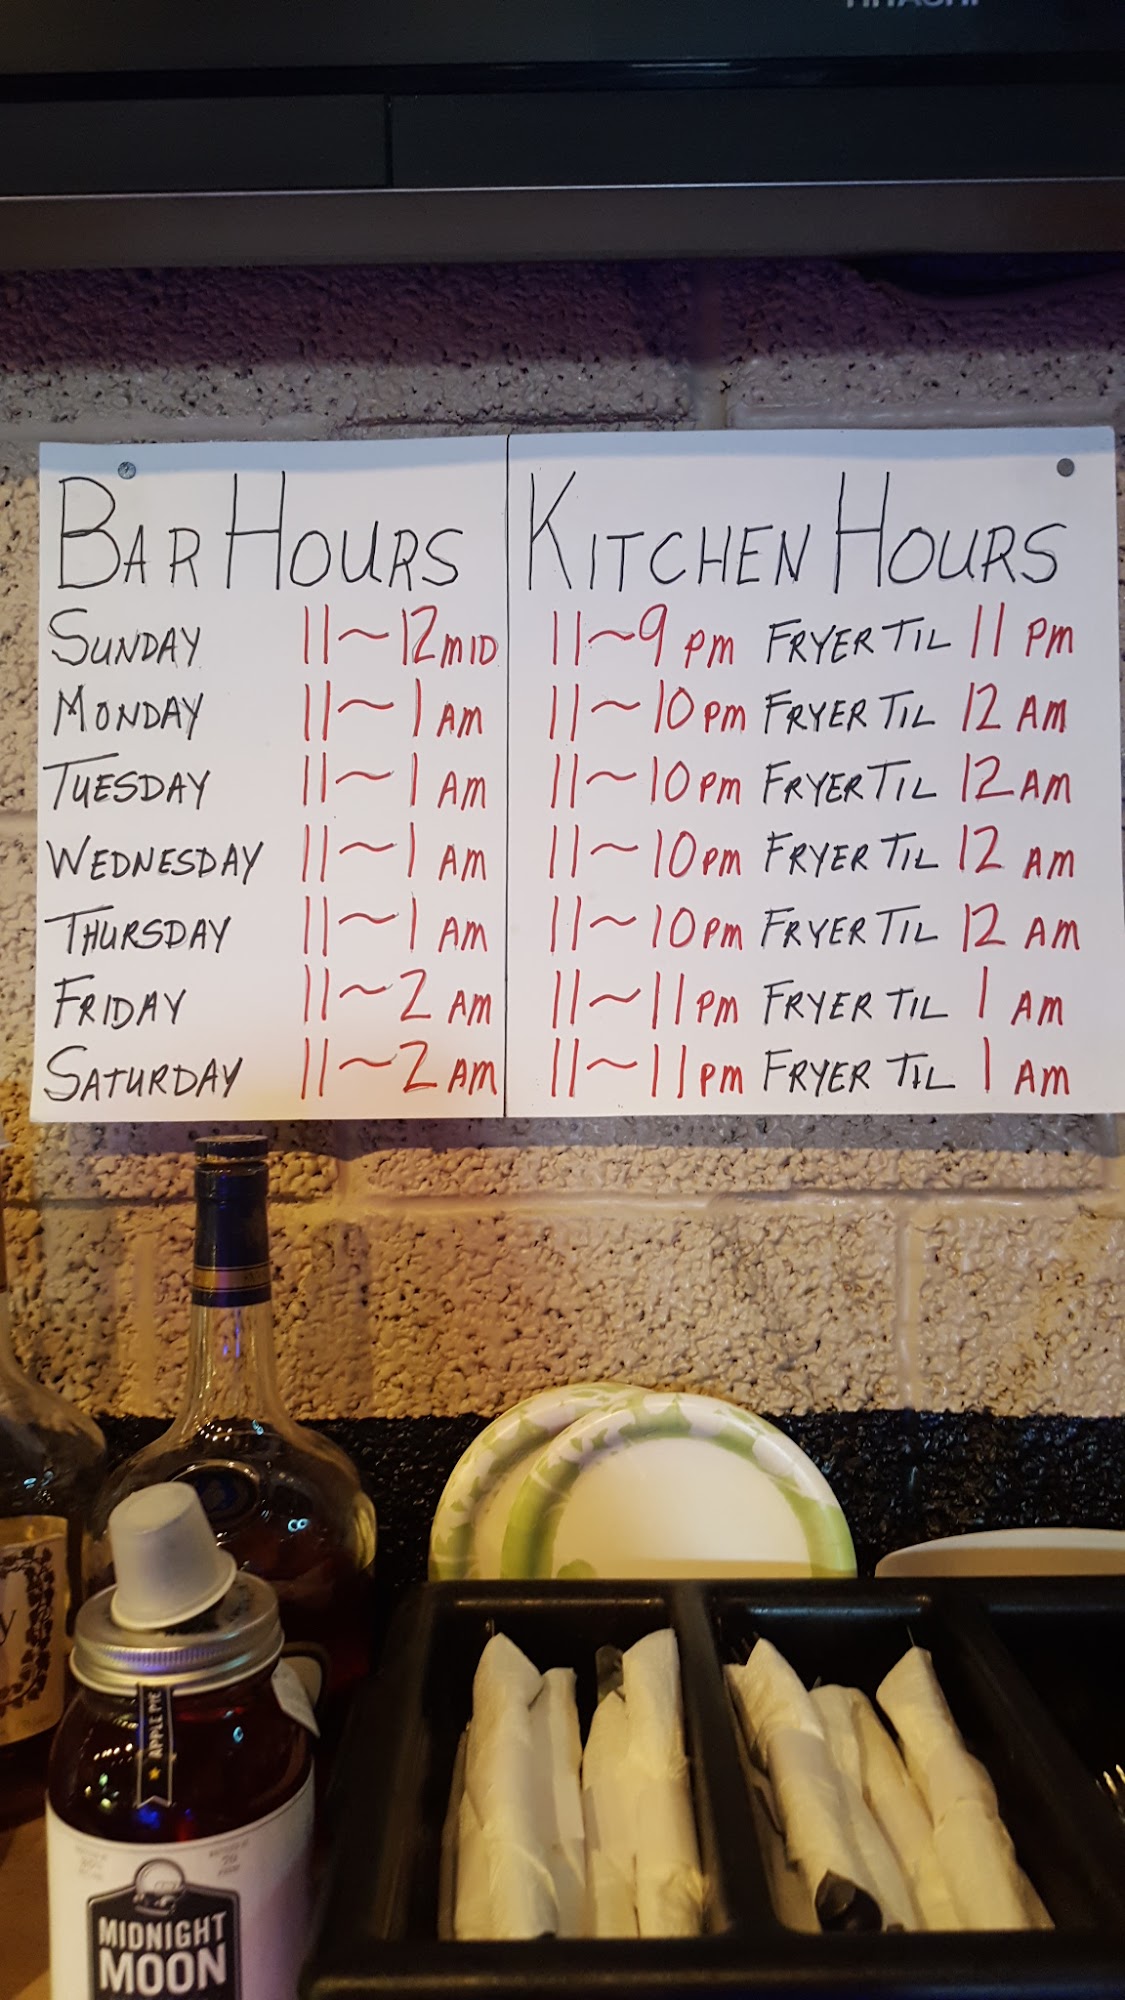 BAR HOURS KITCHEN HOURS
SUNDAY 11~12 MID 11~9 PM FRYER TIL 11 PM
MONDAY 11~1 AM 11~10 PM FRYER TIL 12 AM
TUESDAY 11~1 AM 11~10 PM FRYER TIL 12 AM
WEDNESDAY 11~1 AM 11~10 PM FRYER TIL 12 AM
THURSDAY 11~1 AM 11~10 PM FRYER TIL 12 AM
FRIDAY 11~2 AM 11~11 PM FRYER TIL 1 AM
SATURDAY 11~2 AM 11~11 PM FRYER TIL 1 AM
APPLE PIE
MIDNIGHT
MOON